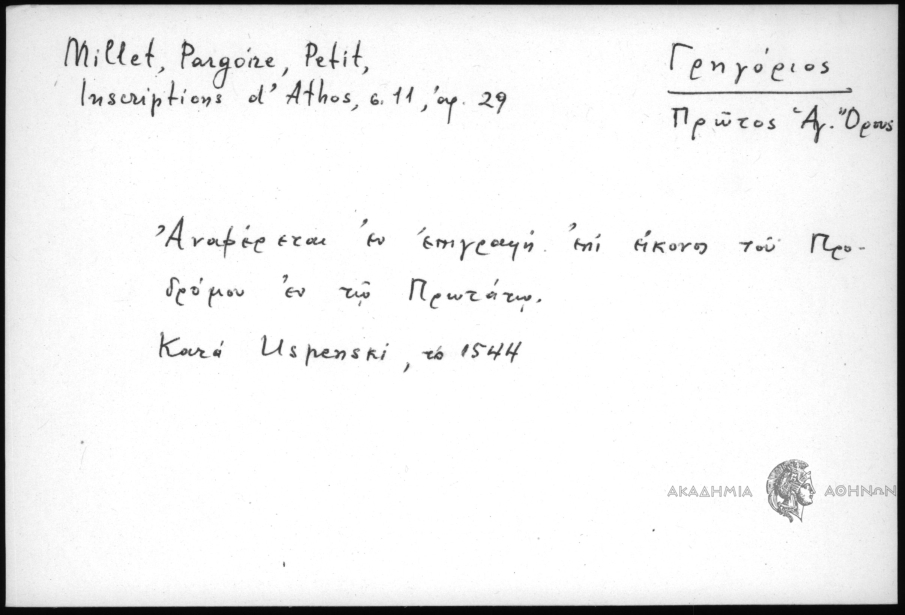 Millet, Pargoire, Petit,
Inscriptions d'Athos, σ. 11, ἀρ. 29
Γρηγόριος
Πρῶτος Ἁγ. Ὄρους
Ἀναφέρεται ἐν ἐπιγραφῇ ἐπί εἰκονος τοῦ Προ-
δρόμου ἐν τῷ Πρωτάτῳ.
Κατά Uspenski, τό 1544
ΑΚΑΔΗΜΙΑ ΑΘΗΝΩΝ